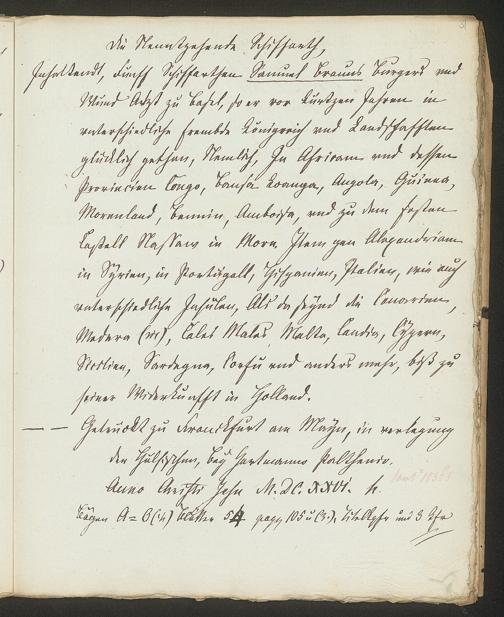 Die Neuntzehende Schiffarth,
Inhaltendt, Fünff Schiffarthen Samuel Brauns Burgers und
Wund Artzt zu Basel, so er vor kurtzen Jahren in
unterschiedliche frembde Königreich und Landschafften
glücklich gethan, Nemlich, In Africam und dessen
Provincien Congo, Bansa Loanga, Angola, Guinea,
Morenland, Bennin, Ambosisa, und zu dem Festen
Castell Nassaw in Mora Item gen Alexandriam
in Syrien, in Portugall, Hispanien, Italien, wie auch
unterschiedliche Insulen, Als da seynd die Canarien,
Madera, Cales Males, Malta, Candia, Cypern,
Sicilien, Sardegna, Corfu und anders mehr, biß zu
seiner Widerkunfft in Holland.
Getruckt zu Franckfurt am Mayn, in verlegung
der Hulsischen, bey Hartmanno Palthenio.
Anno Christi Jesu M. DC. XXVI.
Bögen A = Blätter 54 pagg 105 Titelkpfr und 3 Kfr